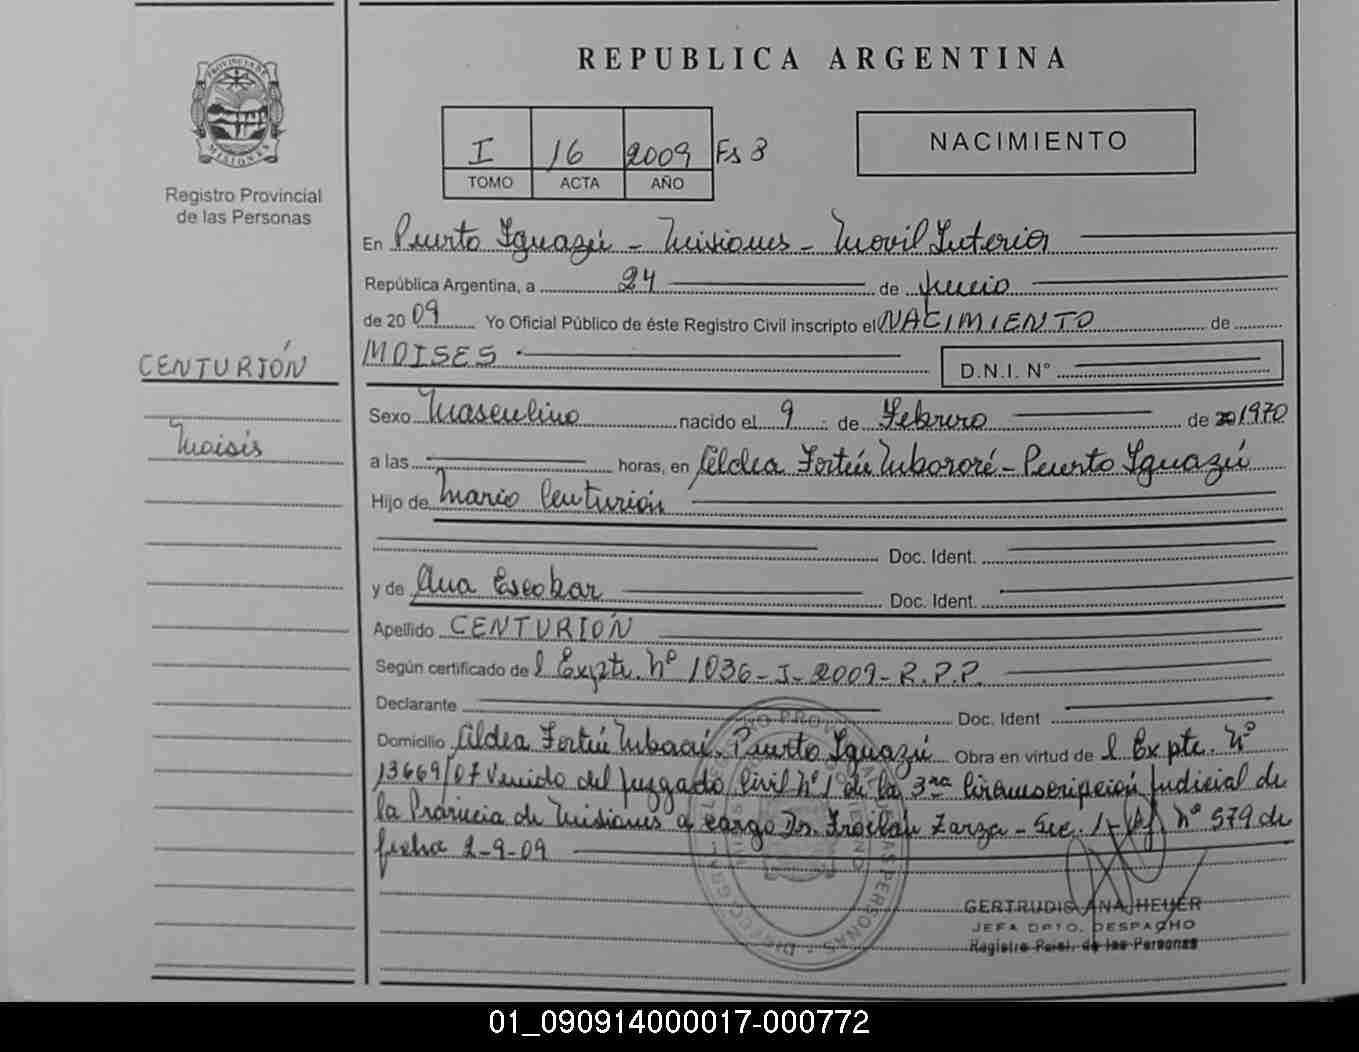 REPUBLICA ARGENTINA
PROVINCIA DE
MISIONES
Registro Provincial
de las Personas
I 16 2009 Fs 3
TOMO ACTA AÑO
NACIMIENTO
En Puerto Iguazú - Misiones - Movil Interior
República Argentina, a 24 de Junio
de 2009 Yo Oficial Público de éste Registro Civil inscripto el NACIMIENTO de
MOISES
D.N.I. N°
CENTURIÓN
Moisés
Sexo Masculino nacido el 9 de Febrero de 20 1970
a las horas, en Aldea Fortín Mbororé - Puerto Iguazú
Hijo de Mario Centurión
Doc. Ident.
y de Ana Escobar Doc. Ident.
Apellido CENTURIÓN
Según certificado de l Expte. Nº 1036-I-2009-R.P.P.
Declarante Doc. Ident
Domicilio Aldea Fortín Puerto Iguazú Obra en virtud de l Expte. Nº
13669/07 Venido del Juzgado Civil Nº 1 de la 3ra Circunscripción Judicial de
la Provincia de Misiones a cargo Dr. Froilán Zarza - Sec. 1- Nº 579 de
fecha 2-9-09
GERTRUDIS ANA HEUER
JEFA DPTO. DESPACHO
Registro Pcial. de las Personas
01_090914000017-000772